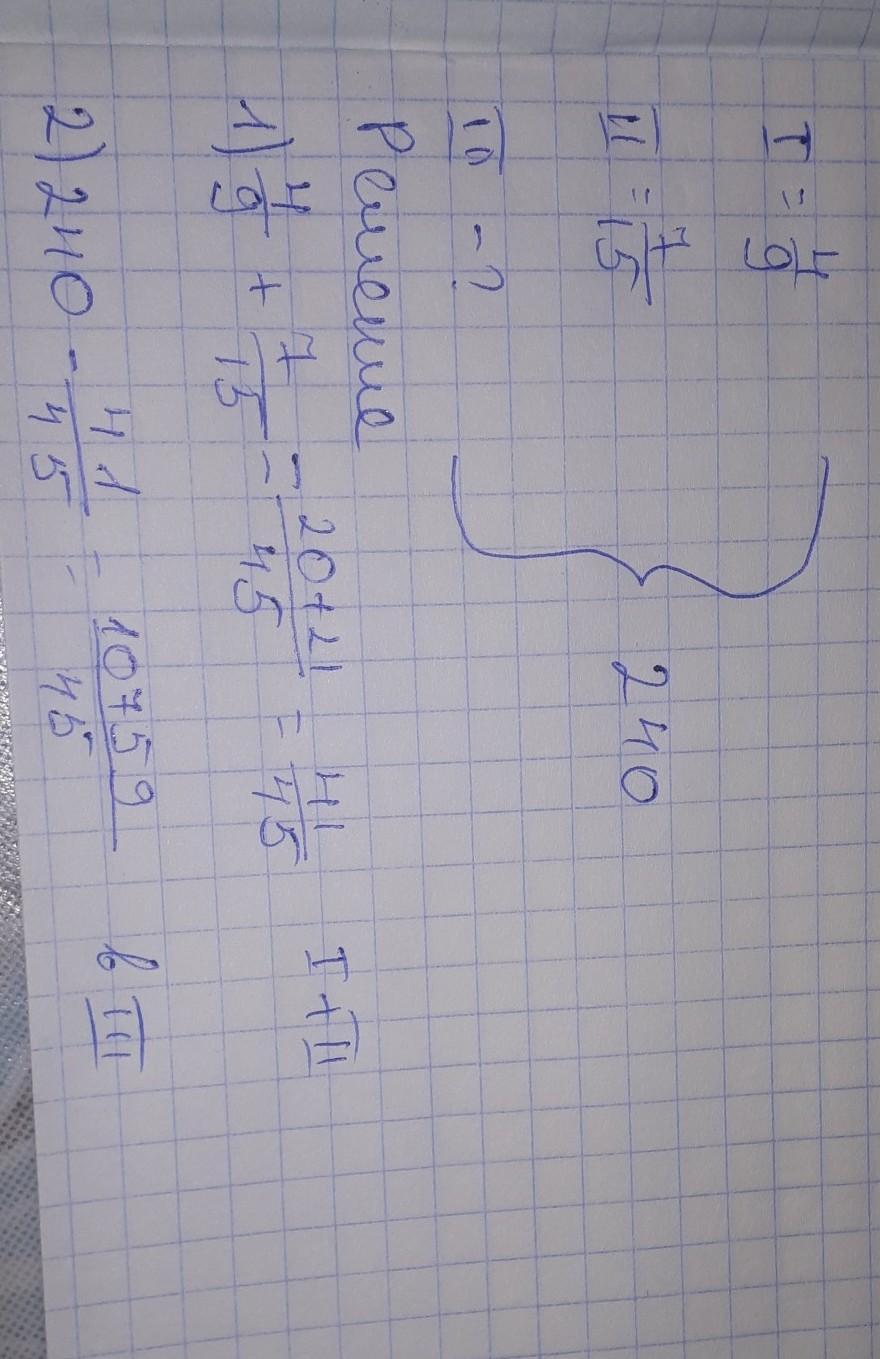 I = 4/9
II = 7/15
III - ?
240
Решение
1) 4/9 + 7/15 = 20+21/45 = 41/45 I+II
2) 240 - 41/45 = 10759/45 в III